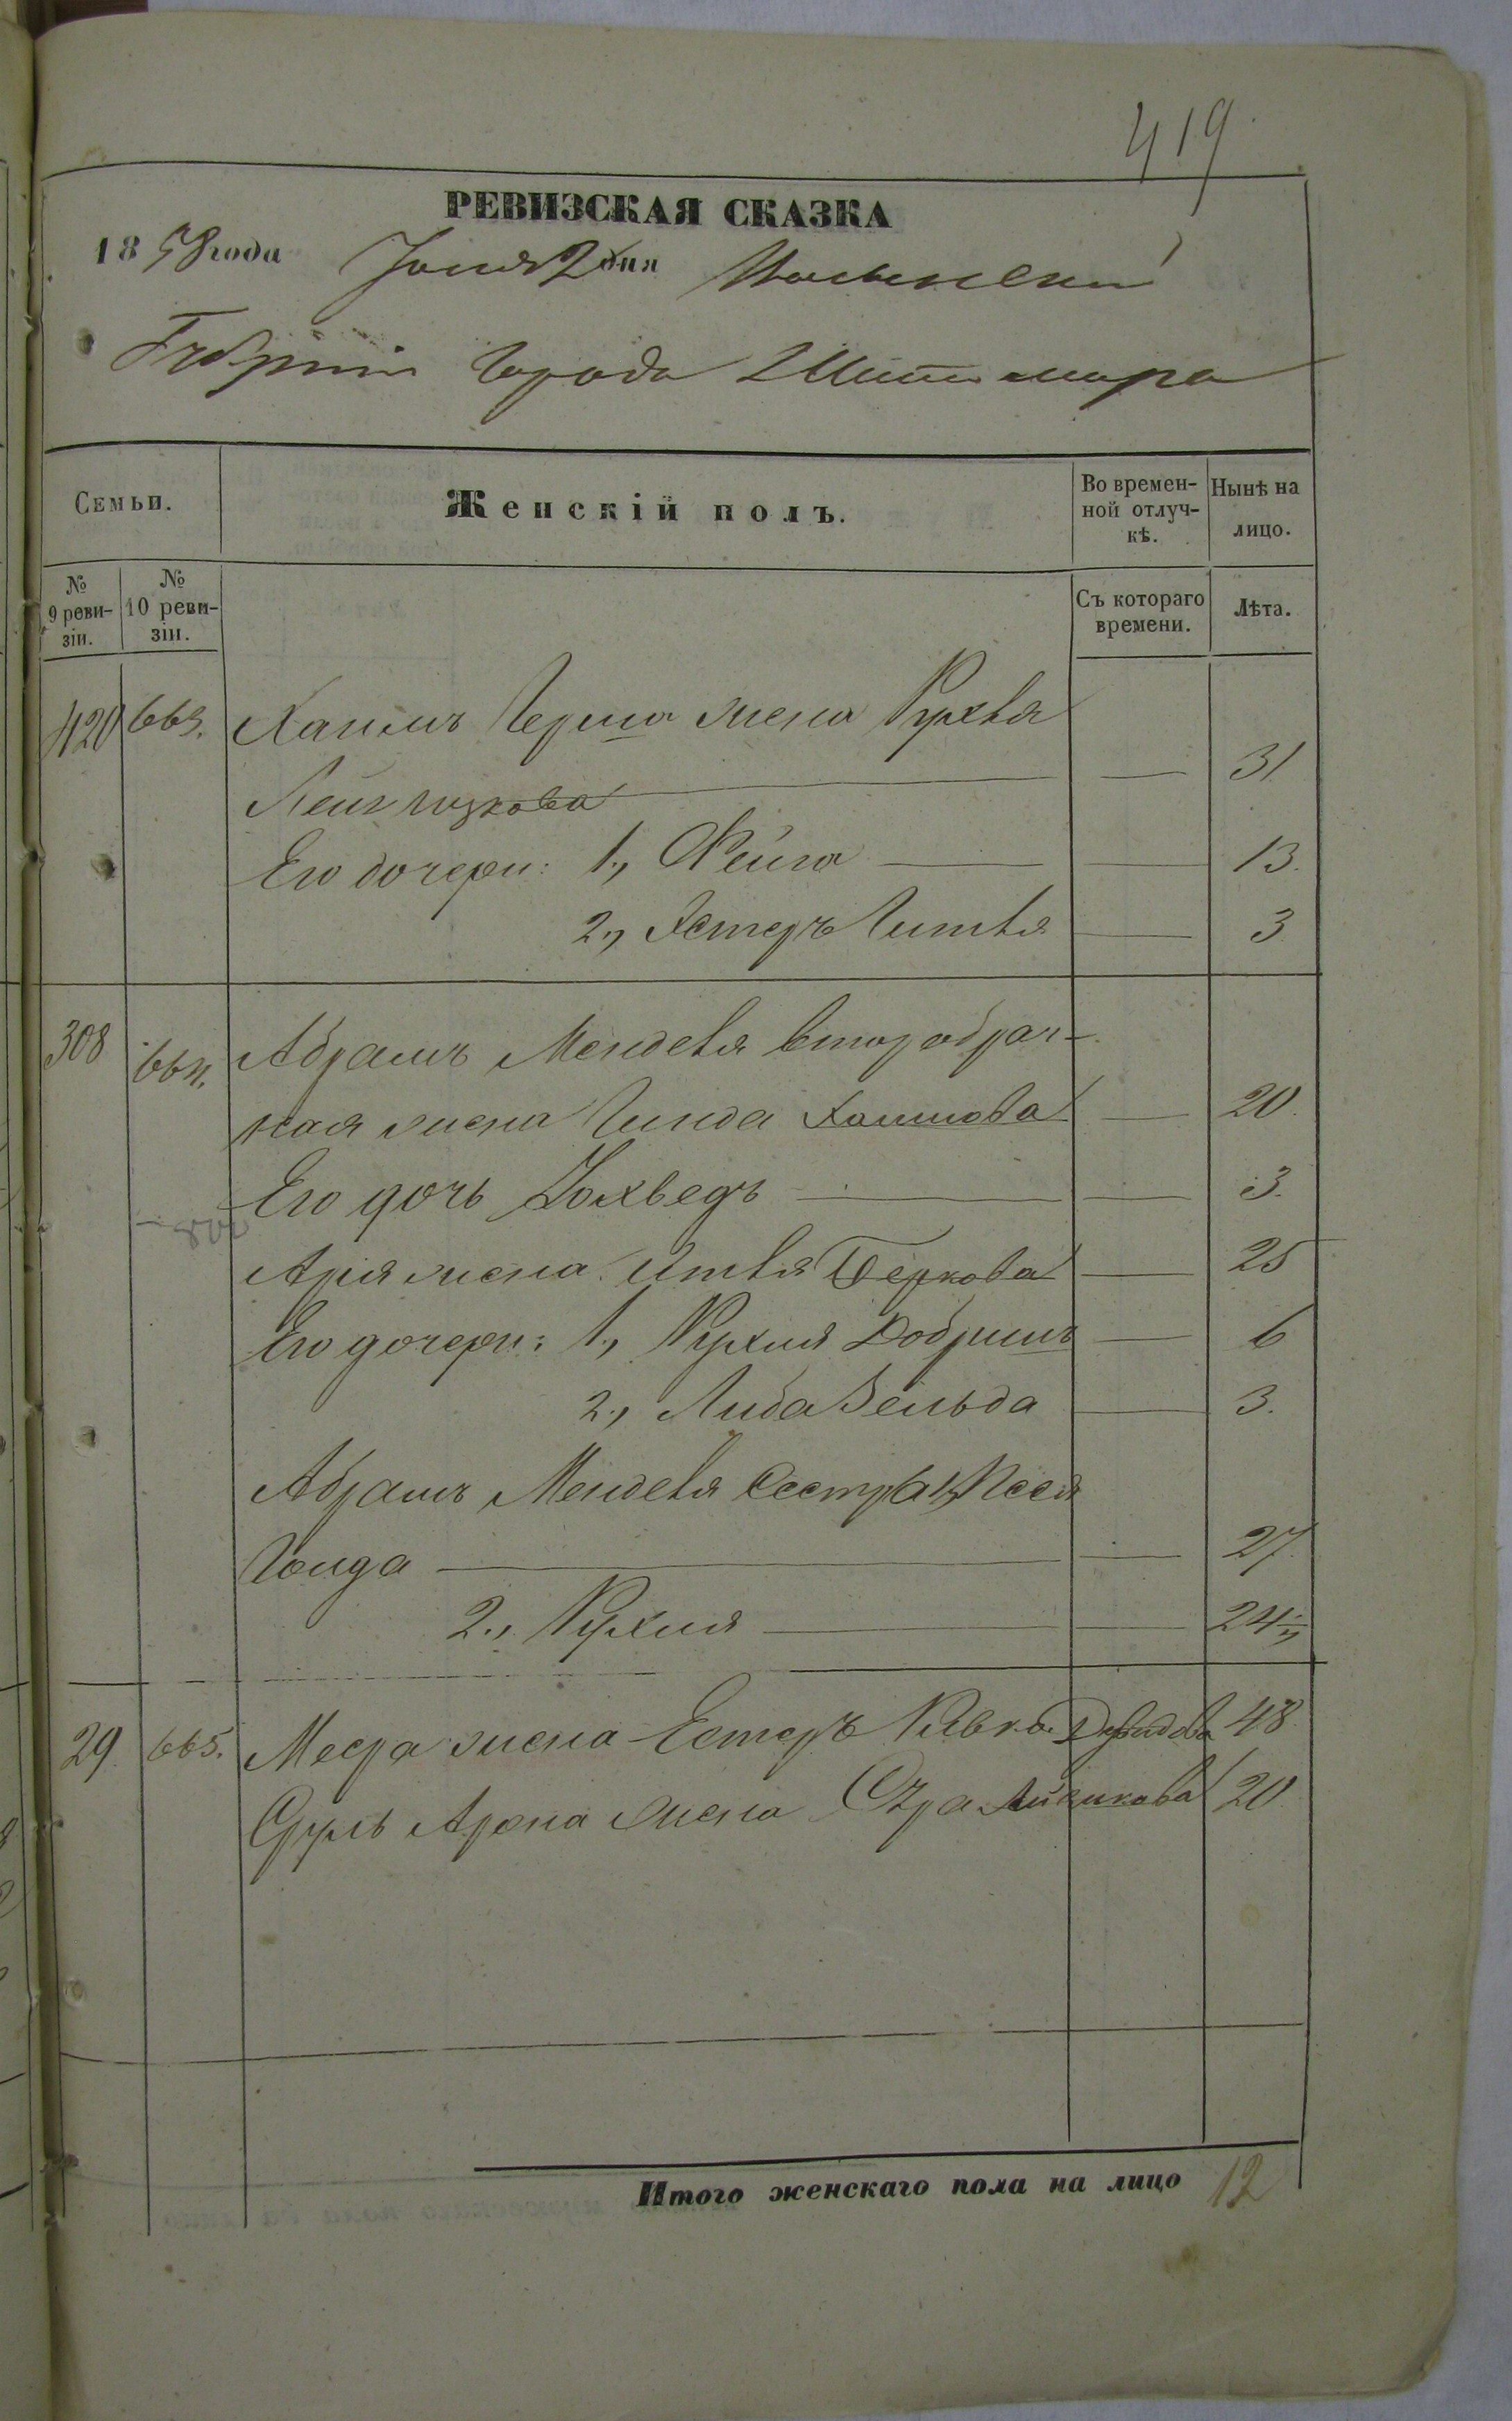 419
РЕВИЗСКАЯ СКАЗКА
1858 года Іюня 2 дня Волынской
Губерніи Города Житомира
Семьи.
Женскій полъ.
Во времен-
ной отлуч-
кѣ.
Нынѣ на
лицо.
№
9 реви-
зіи.
№
10 реви-
зіи.
Съ котораго
времени.
Лѣта.
420 663. Хаимъ Герша жена Рухля
31
Его дочери: 1., Фейга — — 13.
2., Эстеръ Гитля — 3
308 664. Абрамъ Менделя второбрач-
ная жена Гинда Хаимова — 20.
Его дочь Іохведъ — — 3.
Арія жена Итля Беркова — 25
Его дочери: 1., Рухля Добришъ — 6
2., Либа Зельда — 3.
Абрамъ Менделя сестра 1, Песя
Голда — — 27.
2., Рухля — — 24
29. 665. жена Естеръ Ривка Давидова 48.
Сруль Арона жена Сура 20
Итого женскаго пола на лицо 12